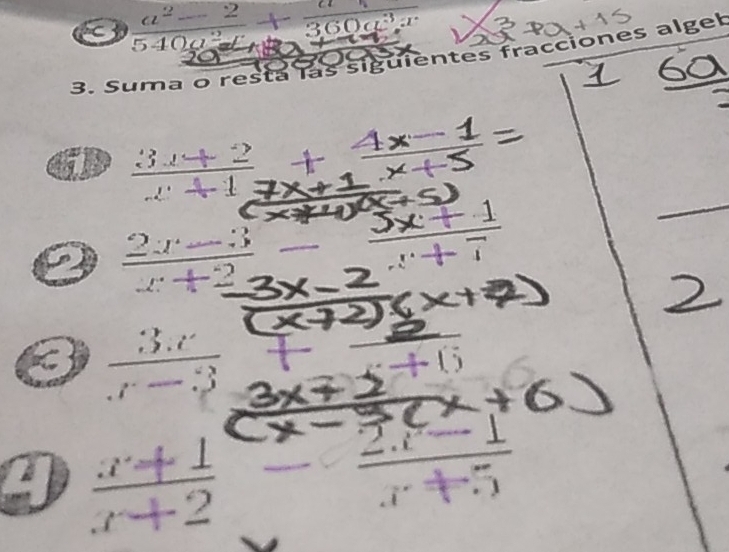 a² - 2 / 540a²x + 360a³x
3. Suma o resta las siguientes fracciones algeb
1 6a
1 3x + 2 / x + 1 + 4x - 1 / x + 5 =
7x+1 / (x+1)(x+5)
2 2x - 3 / x + 2 - 5x + 1 / x + 7
-3x-2 / (x+2)(x+7)
2
3 3x / x - 3 + / + 6
3x+2 / (x-3(x+6)
4 x + 1 / x + 2 - 2x - 1 / x + 5